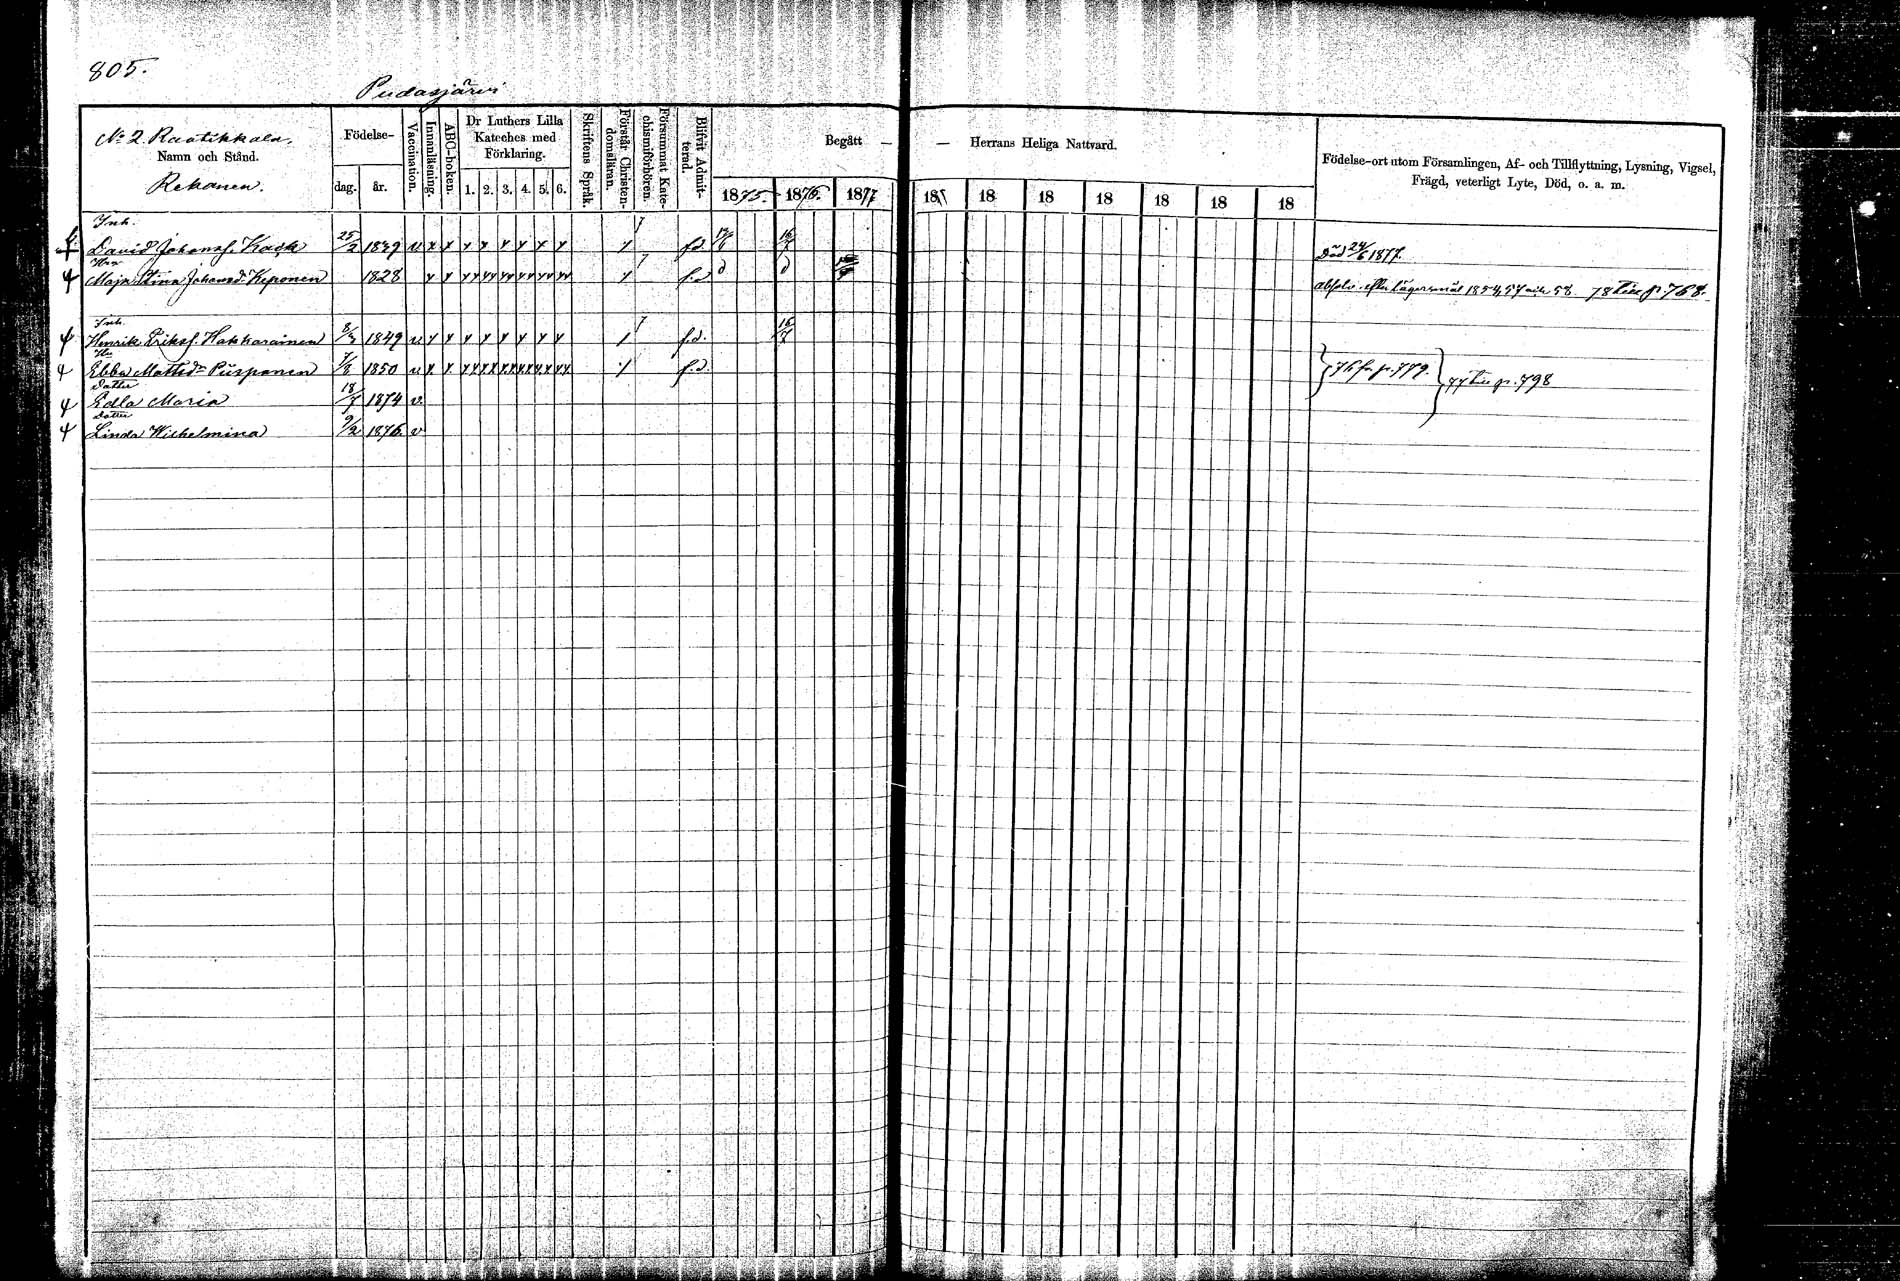 805.
Pudasjärvi
No 2. Raatikkala.
Namn och Stånd.
Rekonen.
Födelse-
dag. år.
Vaccination.
Innanläsning.
ABC-boken.
Dr Luthers Lilla
Kateches med
Förklaring.
1. 2. 3. 4. 5. 6.
Skriftens Språk.
Förstår Christen-
domsläran.
Försummat Kate-
chismiförhören.
Blifvit Admit-
terad.
Begått — — Herrans Heliga Nattvard.
1875. 1876. 1877 18 18 18 18 18 18 18
Födelse-ort utom Församlingen, Af- och Tillflyttning, Lysning, Vigsel,
Frägd, veterligt Lyte, Död, o. a. m.
Inh.
David Johanss. Kack 25/2 1829 v x x x x x x x x f.d. 16/7 Död 24/6 1877.
Maja Stina Johansd. Keponen 1828 f.d. d d 1854, 57 58 78 p 768.
Inh.
Henrik Erikss. Hakkarainen 1849 v x x x x x x x x f.d. 16/7
Hu
Ebba Mattsdr Piispanen 7/8 1850 v x x f.d. 76 fr. p. 779. 77 p. 798
Dotter
Edla Maria 18/7 1874 v.
Dotter
Linda Wilhelmina 9/2 1876. v